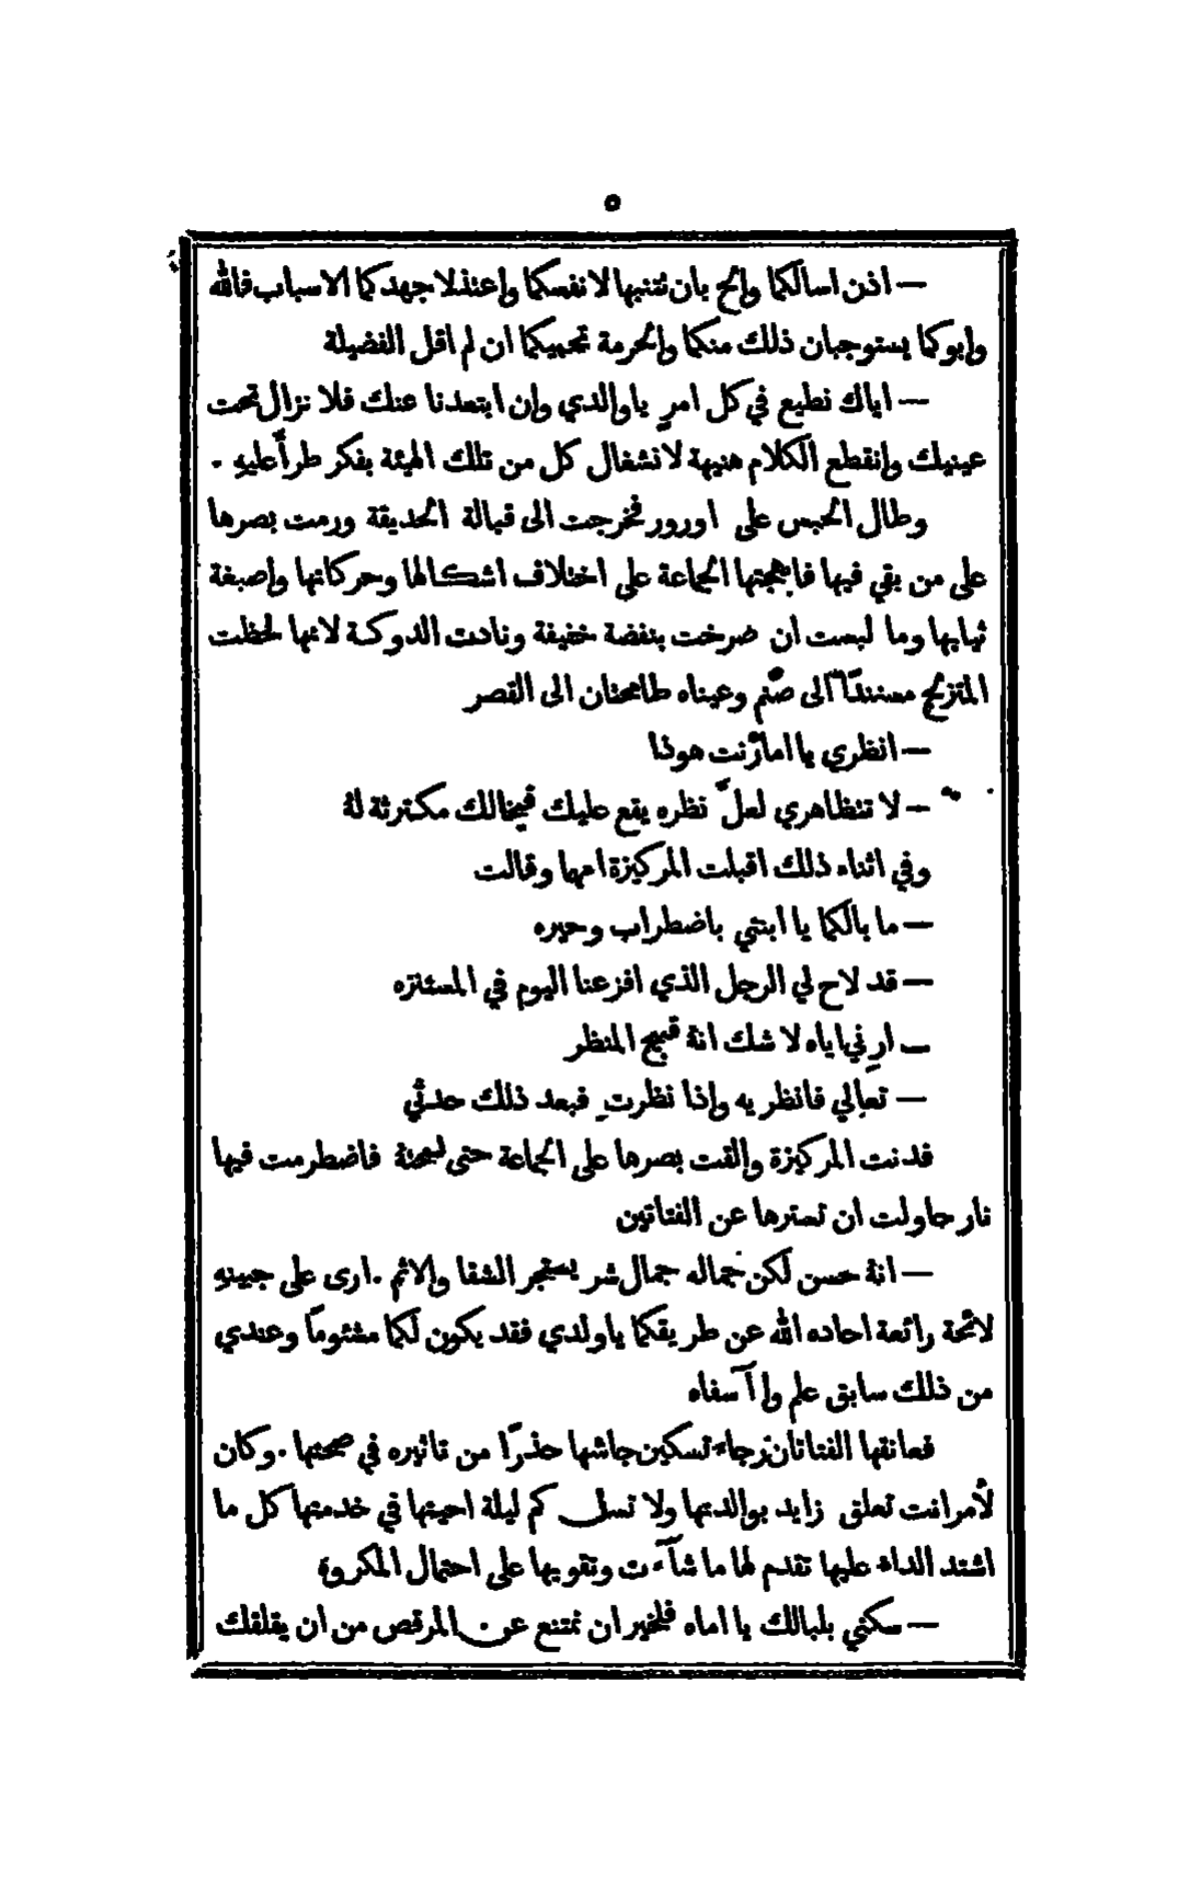 ٥
— اذن اسالكما والح بان تنتبها لانفسكما واعتذلا جهدكما الاسباب فالله
وابوكما يستوجبان ذلك منكما والحرمة تحميكما ان لم اقل الفضيلة
— اياك نطيع في كل امرٍ ياوالدي وان ابتعدنا عنك فلا نزال تحت
عينيك وانقطع الكلام هنيهة لانشغال كل من تلك الهيئة بفكر طرأ عليهِ .
وطال الحبس على اورور فخرجت الى قبالة الحديقة ورمت بصرها
على من بقي فيها فابهجتها الجماعة على اختلاف اشكالها وحركاتها واصبغة
ثيابها وما لبست ان صرخت بنفضة خفيفة ونادت الدوكة لانها لحظت
المتزلج مستندًا الى صنم وعيناه طامحتان الى القصر
— انظري يا امارنت هوذا
— لا تتظاهري لعلّ نظره يقع عليك فيخالك مكترثة لهُ
وفي اثناء ذلك اقبلت المركيزة امها وقالت
— ما بالكما يا ابنتي باضطراب وحيره
— قد لاح لي الرجل الذي افزعنا اليوم في المستنزه
— ارِني اياه لا شك انهُ قبيح المنظر
— تعالِي فانظريه واذا نظرتِ فبعد ذلك حدثي
فدنت المركيزة والقت بصرها على الجماعة حتى لمحتهُ فاضطرمت فيها
نار حاولت ان تسترها عن الفتاتين
— انهُ حسن لكن جماله جمال شر يستجر الشقا والاثم . ارى على جبينهِ
لائحة رائعة احاده الله عن طريقكما ياولدي فقد يكون لكما مشئومًا وعندي
من ذلك سابق علم وا آسفاه
فعانقها الفتاتان رجاء تسكين جاشها حذرًا من تاثيره في صحتها . وكان
لأمرانت تعلق زايد بوالدتها ولا تسل كم ليلة احيتها في خدمتها كل ما
اشتد الداء عليها تقدم لها ما شآءت وتقويها على احتمال المكروه
— سكني بلبالك يا اماه فلخير ان نمتنع عن المرقص من ان يقلقك